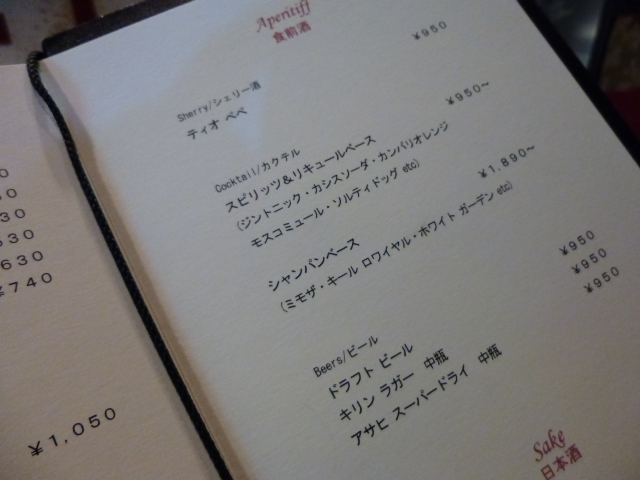 Aperitiff
食前酒
Sherry/シェリー酒
ティオ ペペ ¥950
Cocktail/カクテル
スピリッツ&リキュールベース ¥950~
(ジントニック・カシスソーダ・カンパリオレンジ
モスコミュール・ソルティドッグ etc)
シャンパンベース ¥1,890~
(ミモザ・キール ロワイヤル・ホワイト ガーデン etc)
Beers/ビール
ドラフト ビール ¥950
キリン ラガー 中瓶 ¥950
アサヒ スーパードライ 中瓶 ¥950
Sake
日本酒
¥740
¥1,050